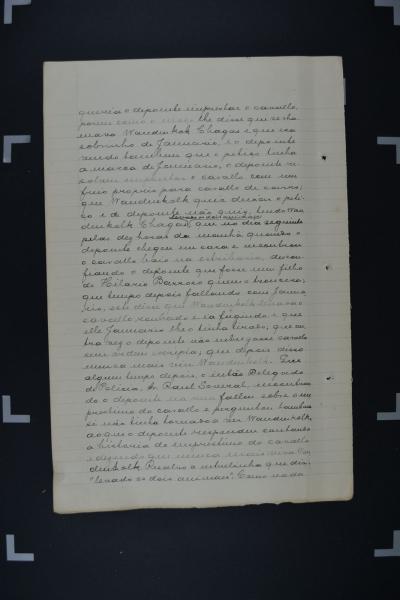 queria o depoente emprestar o cavallo,
porem como o moço lhe disse que se cha
mava Wandenkolk Chagas e que era
sobrinho de Januario, e o depoente
vendo tambem que o petiço tinha
a marca de Januario, o depoente re
solveu emprestar o cavallo com um
freio proprio para cavallo de carro;
que Wandenkolk quiz deixar o peti-
ço e o depoente não quiz, tendo Wan
denkolk Chagas, que no dia seguinte
pelas dez horas da manhã quando o
depoente chegou em casa e encontrou
o cavallo baio na estribaria, descon
fiando o depoente que fosse um filho
de Hilario Barroso quem o trouxera;
que tempo depois fallando com Janua
rio, este disse que Wandenkolk levava o
cavallo roubado e ia fugindo e que
elle Januario lh'o tinha tirado, que ou
tra vez o depoente não entregasse cavallo
sem ordem escripta; que depois disso
nunca mais viu Wandenkolk. Que
algum tempo depois, o então Delegado
de Policia, Sr. Raul Soveral, encontran
do o depoente na rua fallou sobre o em
prestimo do cavallo e perguntou tambem
se não tinha tornado a ver Wandenkolk,
ao que o depoente respondeu contando
a historia do emprestimo do cavallo
e dizendo que nunca mais vira Wan
denkolk
"levado os dois animaes". Como nada